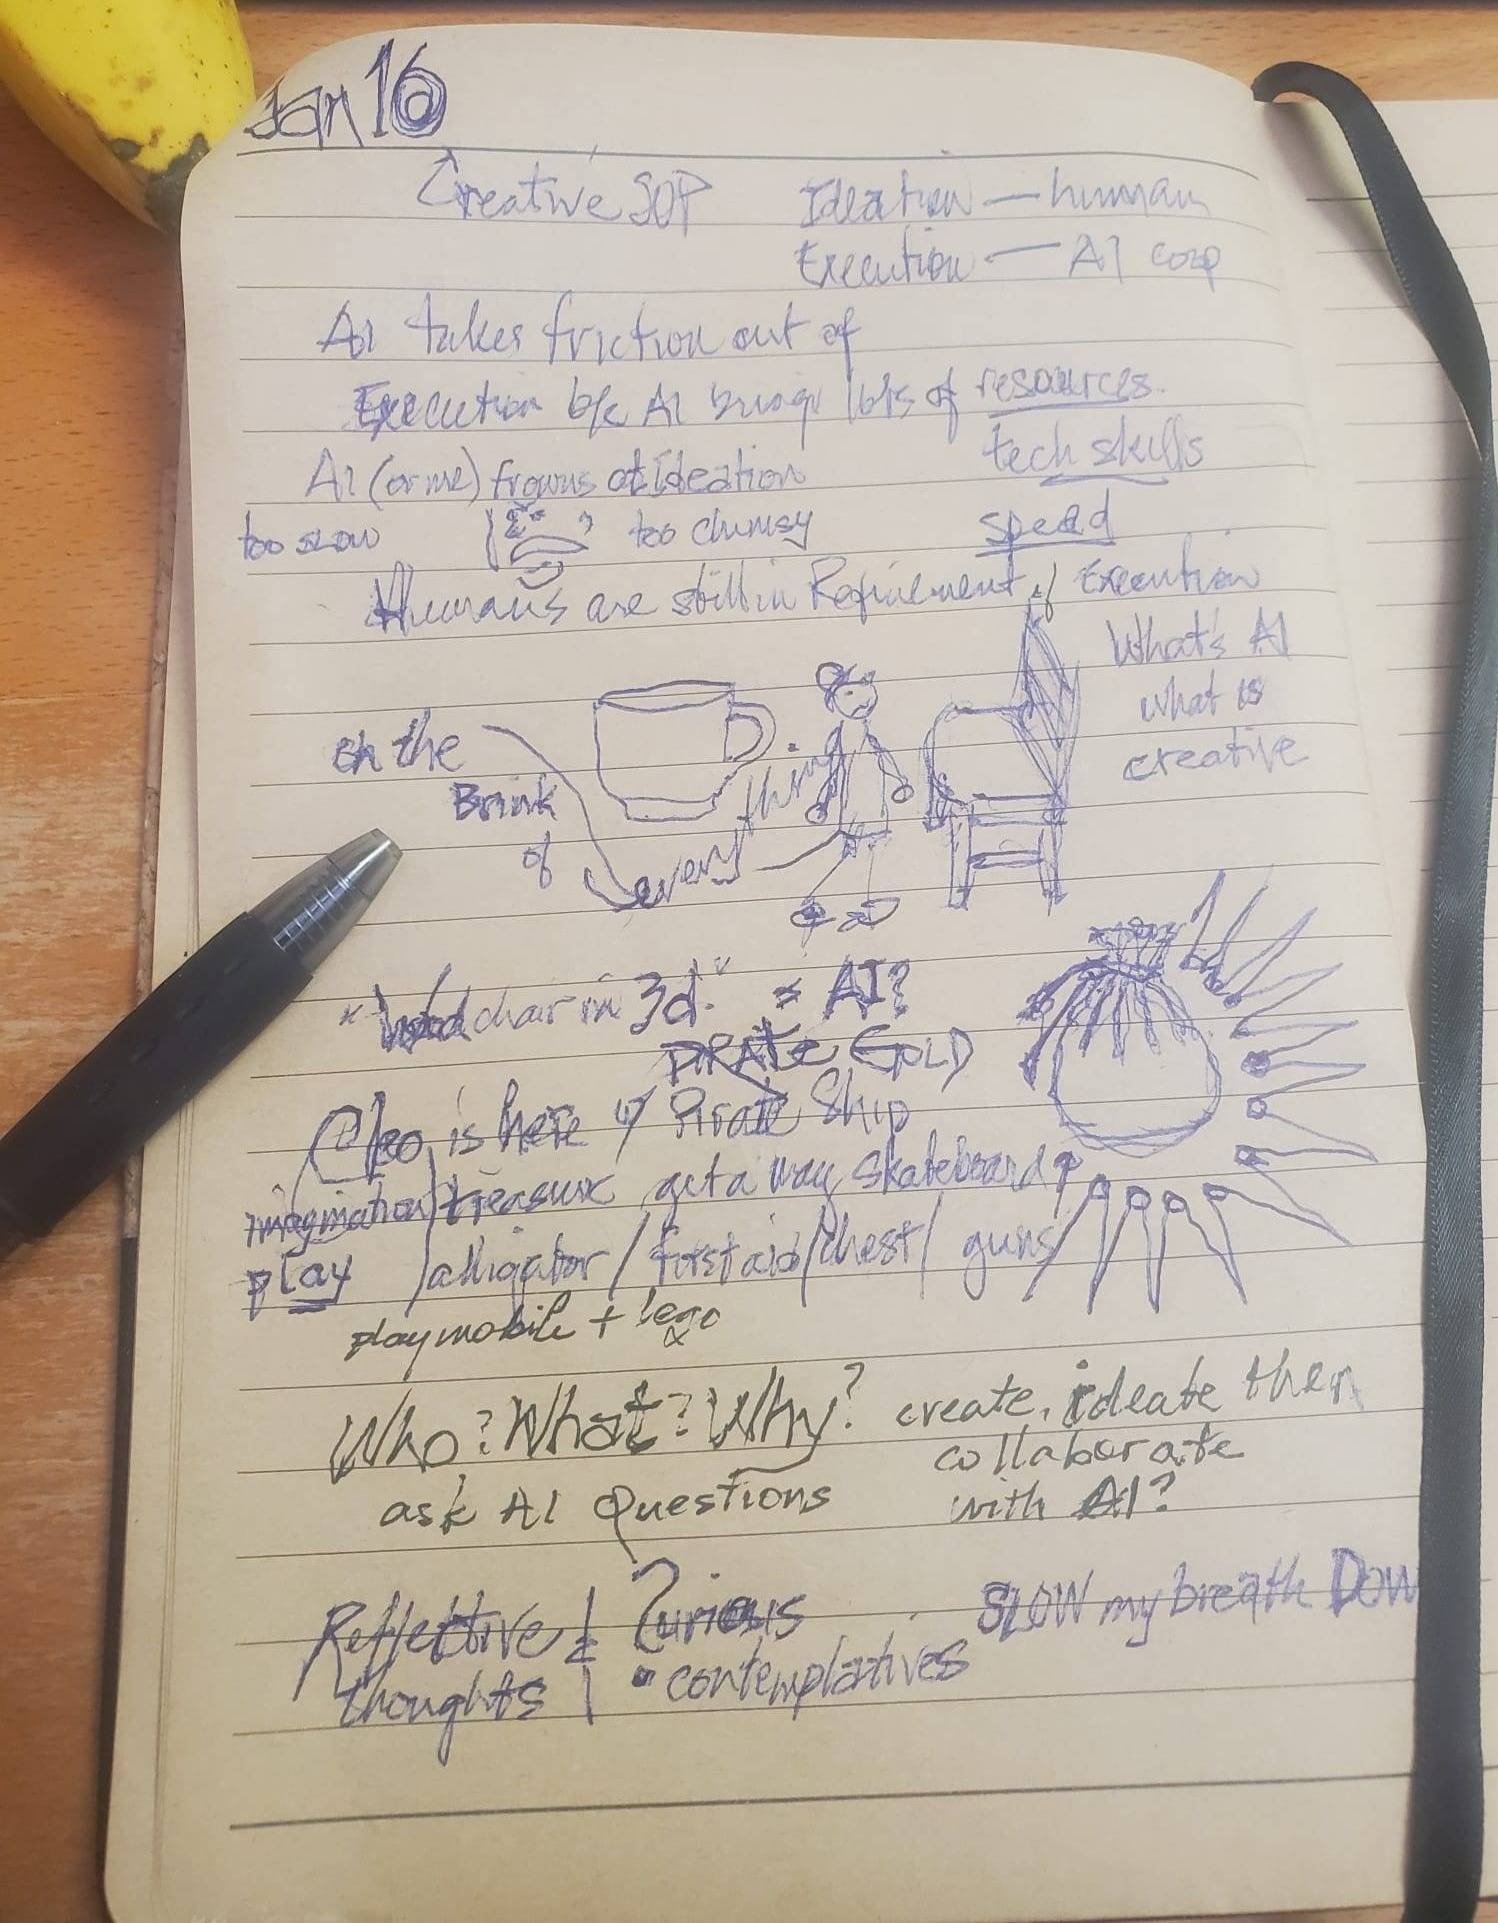 Jan 16
Creative SOP
Ideation — human
Execution — AI corp
AI takes friction out of
Execution b/c AI brings lots of resources.
tech skills
speed
AI (or me) frowns at Ideation
too slow too clumsy
Humans are still in Refinement of Execution
What's AI
what is
creative
on the
Brink
of
everything
"Wood chair in 3d." = AI?
PIRATE GOLD
Cleo is here w/ Pirate Ship
imagination/treasure get a way skateboard
play /alligator/first aid/chest/ guns/
playmobile + lego
Who? What? Why?
ask AI Questions
create, ideate then
collaborate
with AI?
Reflective
thoughts
Curious
• contemplatives
SLOW my breath DOW